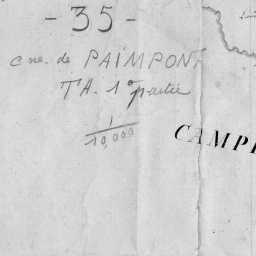 - 35 -
Cne. de PAIMPONT
TA. 1° partie
1/10,000
CAMPE